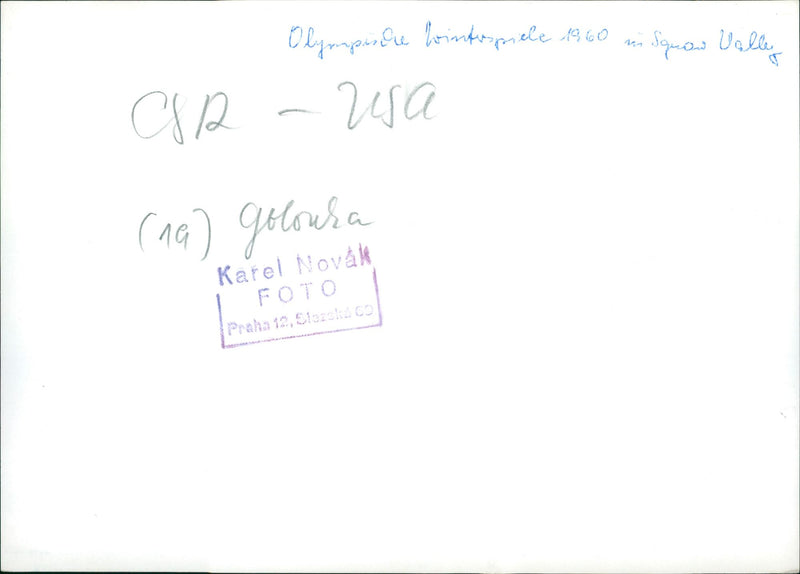 Olympische Winterspiele 1960 in Squaw Valley
CSR - USA
(19) Golonka
Karel Novák
FOTO
Praha 12, Slezská